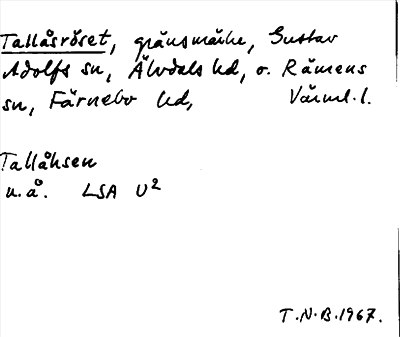 Tallåsröset, gränsmärke, Gustav
Adolfs sn, Älvdals hd, o. Rämens
sn, Färnebo hd, Värml. l.
Tallåhsen
u.å. LSA U²
T.N.B. 1967.